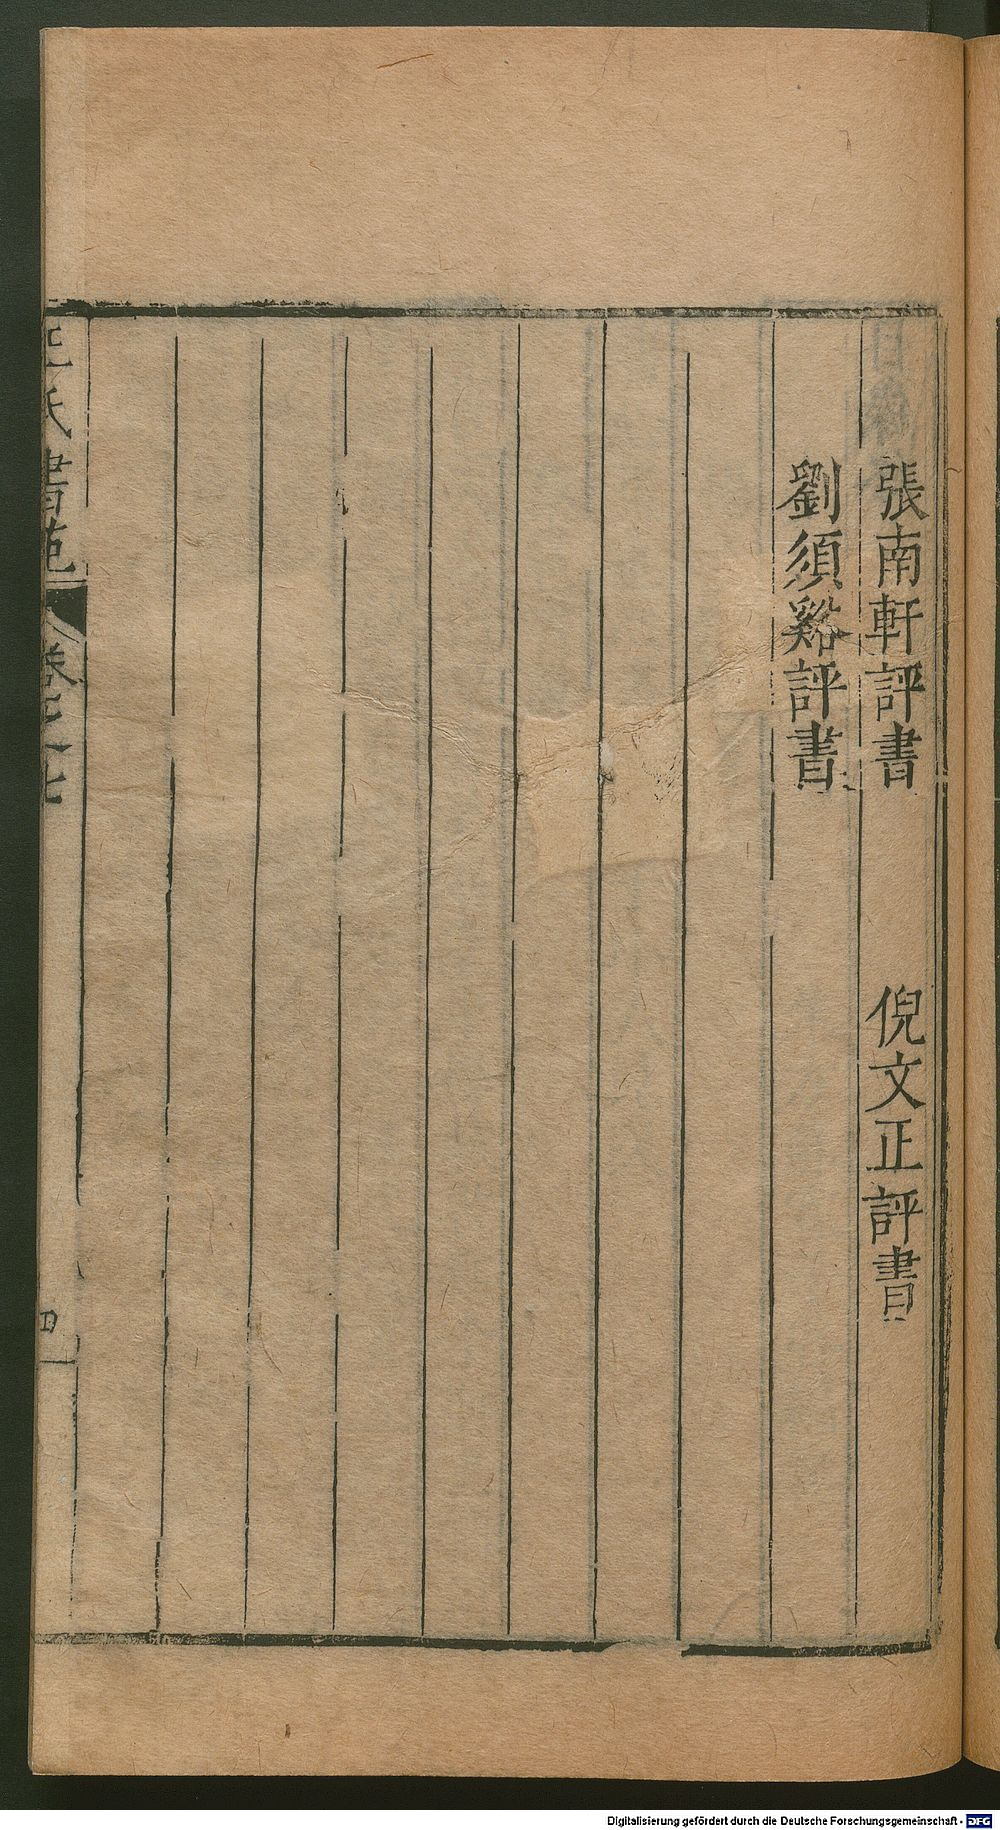 張南軒評書 倪文正評書
劉須谿評書
王氏書苑 卷之七 四
Digitalisierung gefördert durch die Deutsche Forschungsgemeinschaft - DFG